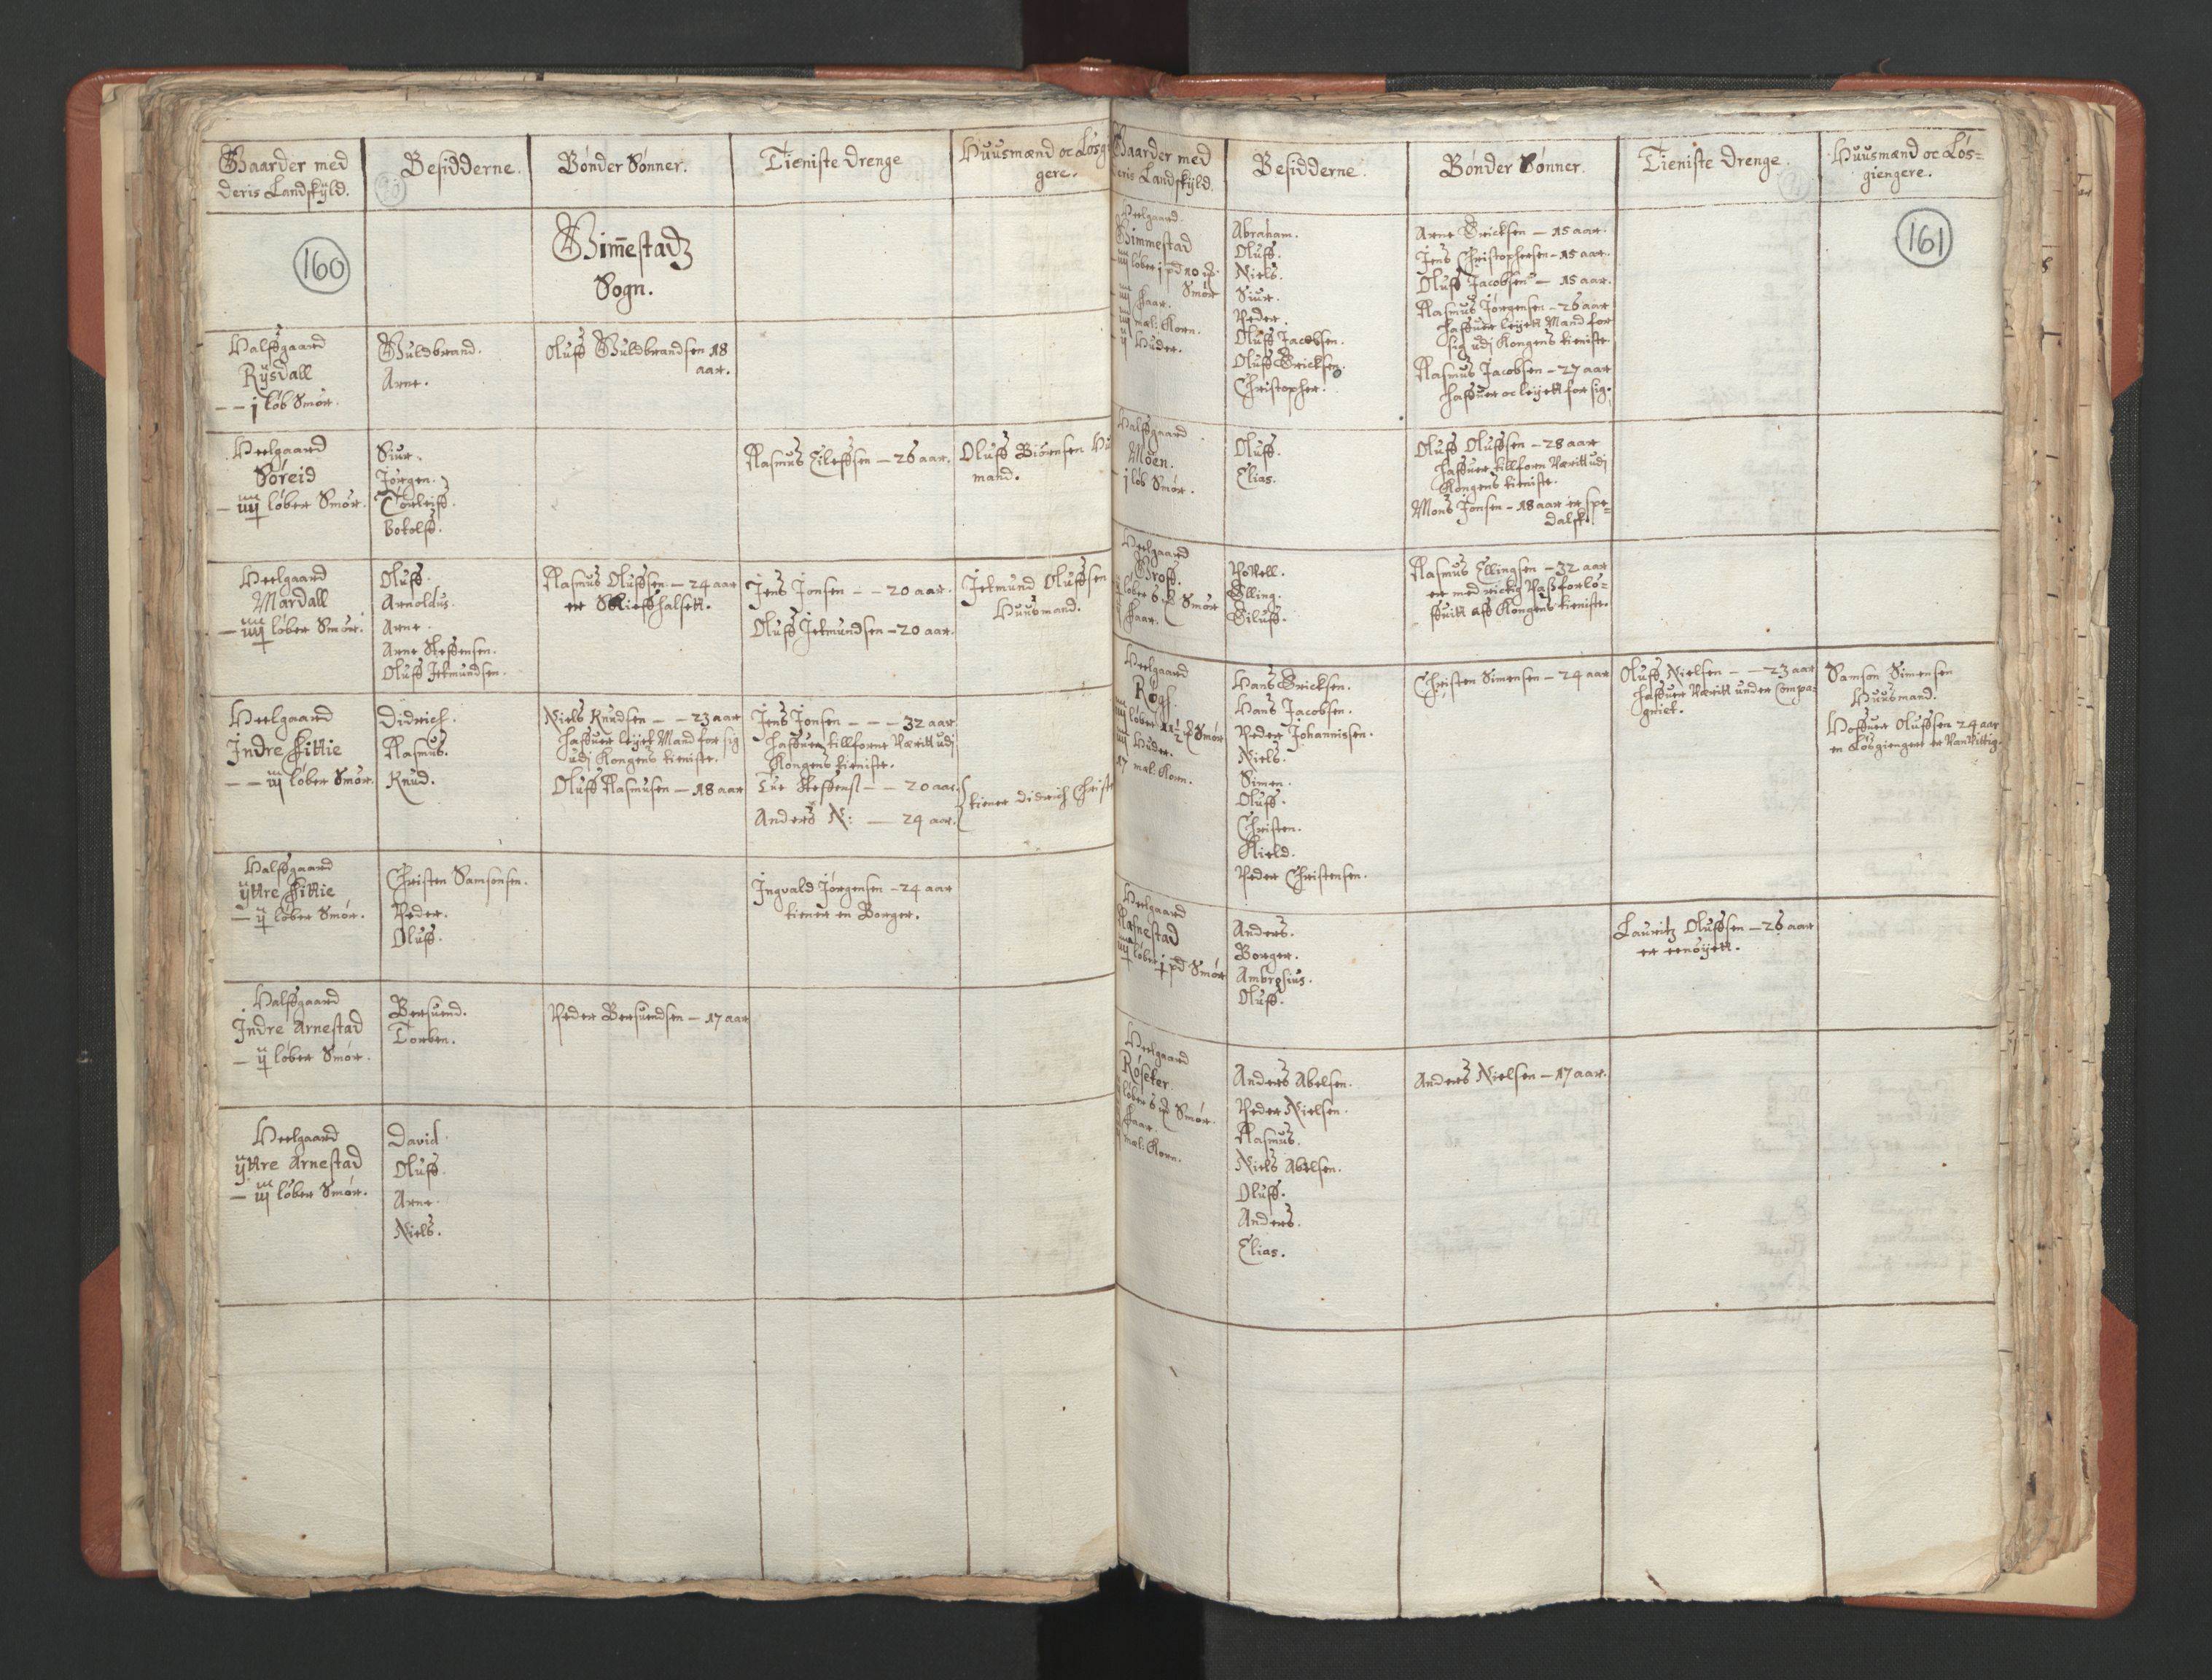 Gaarder med
deris Landskÿld.
Besidderne.
Bønder Sønner.
Tieniste Drenge
Huusmænd oc Løsg
gere.
160
Gim̄estadz
Sogn.
Halffgaard
Rÿsdall
– – j løb Smør.
Guldbrand.
Arne.
Oluff Guldbrandsen 18
aar.
Heelgaard
Søreid
– iiij løber Smør.
Siur.
Jørgen.
Torleiff.
Botolff.
Rasmus Eileffsen – 26 aar.
Oluff Biørnsen Hu
mand.
Heelgaard
Mardall
– iiij løber Smør.
Oluff.
Arnoldus.
Arne.
Arne Steffensen.
Oluff Jetmundsen.
Rasmus Oluffsen – 24 aar
er Skieffhalsett.
Jens Jonsen – – 20 aar.
Oluff Jetmundsen – 20 aar.
Jetmund Oluffsen
Huusmand.
Heelgaard
Jndre Hittie
– – iij løber Smør.
Didrich.
Rasmus.
Knud.
Niels Knudsen – – 23 aar
haffuer leyet Mand for sig
udj Kongens tieniste.
Oluff Rasmusen – 18 aar
Jens Jonsen – – – 32 aar.
haffuer tillforne Væritt udj
Kongens tieniste.
Lue Steffens – – 20 aar.
Anders N: – 24 aar.
tiener Didrich Christe
Halffgaard
ÿttre Hittie
– ij løber Smør.
Christen Samsonsen.
Peder.
Oluff.
Jngvald Jørgensen – 24 aar
tiener en Borger.
Halffgaard
Jndre Arnestad
– ij løber Smør.
Bersuend.
Torben.
Peder Bersuendsen – 17 aar
Heelgaard
ÿttre Arnestad
– iij løber Smør.
David
Oluff
Arne
Niels.
Gaarder med
deris Landskÿld.
Besidderne.
Bønder Sønner.
Tieniste Drenge.
Huusmænd oc Løs=
giengere.
161
Heelgaard
Gimmestad
iiij løber j pd 10 ℔.
Smør
iij Faar.
iiij mæl: Korn.
ij Huder.
Abraham.
Oluff.
Niels.
Siur.
Peder.
Oluff Jacobsen.
Oluff Ericksen.
Christopher.
Arne Ericksen – 15 aar.
Jens Christophersen – 15 aar.
Oluff Jacobsen – 15 aar.
Rasmus Jørgensen – 26 aar
haffuer leyett Mand for
sig udj Kongens tieniste
Rasmus Jacobsen – 27 aar
haffuer oc leyett for sig.
Halffgaard
Moen.
– j løb Smør.
Oluff.
Elias.
Oluff Oluffsen – 28 aar
haffuer tillforn Væritt udj
Kongens tieniste.
Mons Jonsen – 18 aar er spe=
dalsk.
Heelgaard
Groff.
løber 6 ℔ Smør
Faar.
Povell.
Elling.
Eiluff.
Rasmus Ellingsen – 32 aar
er med rictig Pass forlø=
ffuitt aff Kongens tieniste.
Heelgaard
Røgh.
løber 11½ ℔ Smør
Huder.
17 mæl: Korn.
Hans Ericksen.
Hans Jacobsen.
Peder Johannissen.
Niels.
Simen.
Oluff.
Christen.
Kield.
Peder Christensen.
Christen Simensen – 24 aar
Oluff Nielsen – – 23 aar
haffuer Væritt under Compa=
gniet.
Samson Simensen
Huusmand.
Hoffuer Oluffsen 24 aar
en Løsgienger er Vanvittig.
Heelgaard
Ræsnestad
iiij løber j pd Smør
Anders.
Borger.
Ambrosius.
Oluff.
Lauritz Oluffsen – 26 aar
er eenøyett.
Heelgaard
Røseter.
løber 6 ℔ Smør.
Faar.
mæl: Korn.
Anders Abelsen.
Peder Nielsen.
Rasmus.
Niels Abelsen.
Oluff.
Anders.
Elias.
Anders Nielsen – 17 aar.